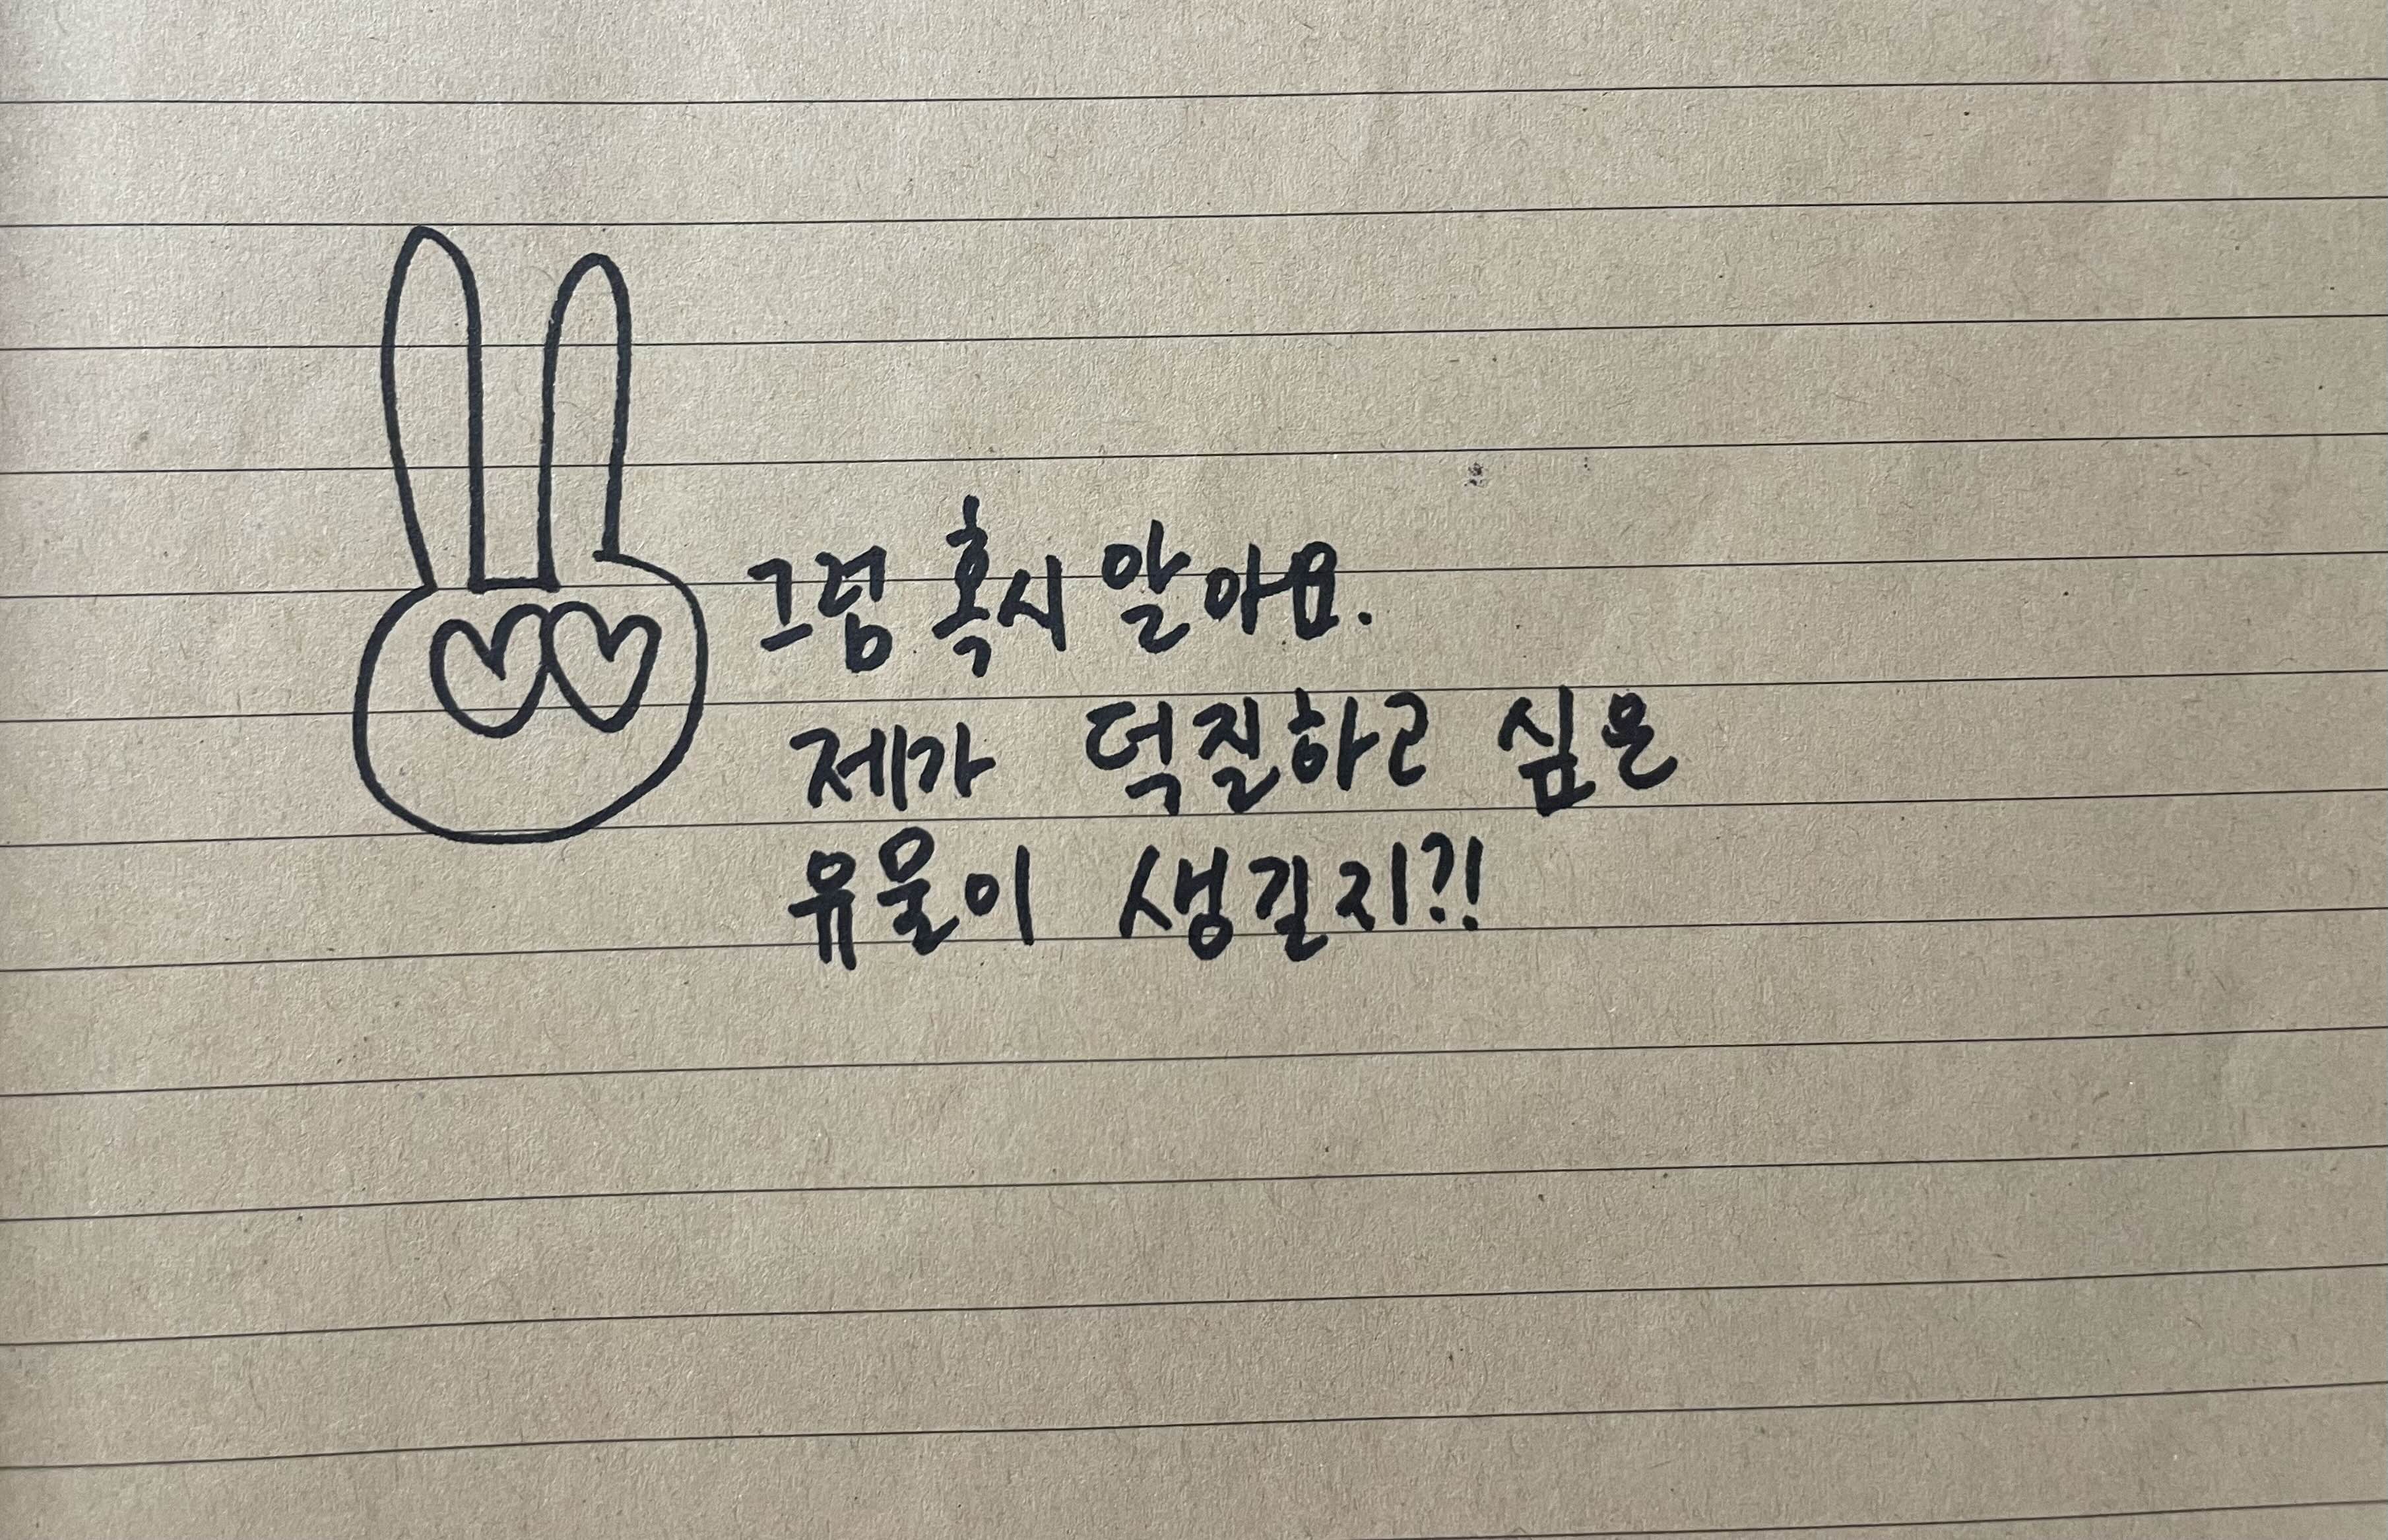 그럼 혹시 알아요.
제가 덕질하고 싶은
유물이 생길지?!